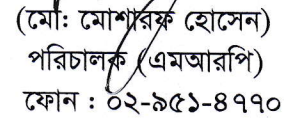 (মোঃ মোশাররফ হোসেন)
পরিচালক (এমআরপি)
ফোন : ০২-৯৫১-৪৭৭০